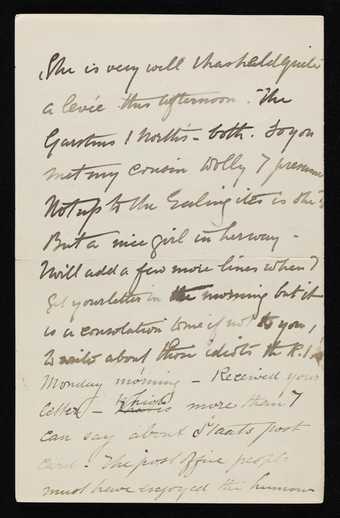 She is very well & has held quite
a levée this afternoon. The
& Norths - both. So you
met my cousin Dolly I presume
Not up to the Ealing ites is she?
But a nice girl in her way -
I will add a few more lines when I
get your letter in the morning but it
is a consolation to me if not to you,
to write about those idiots the R.I.
Monday morning - Received your
letter - which is more than I
can say about Staats post
card. The post office people
must have enjoyed the humour